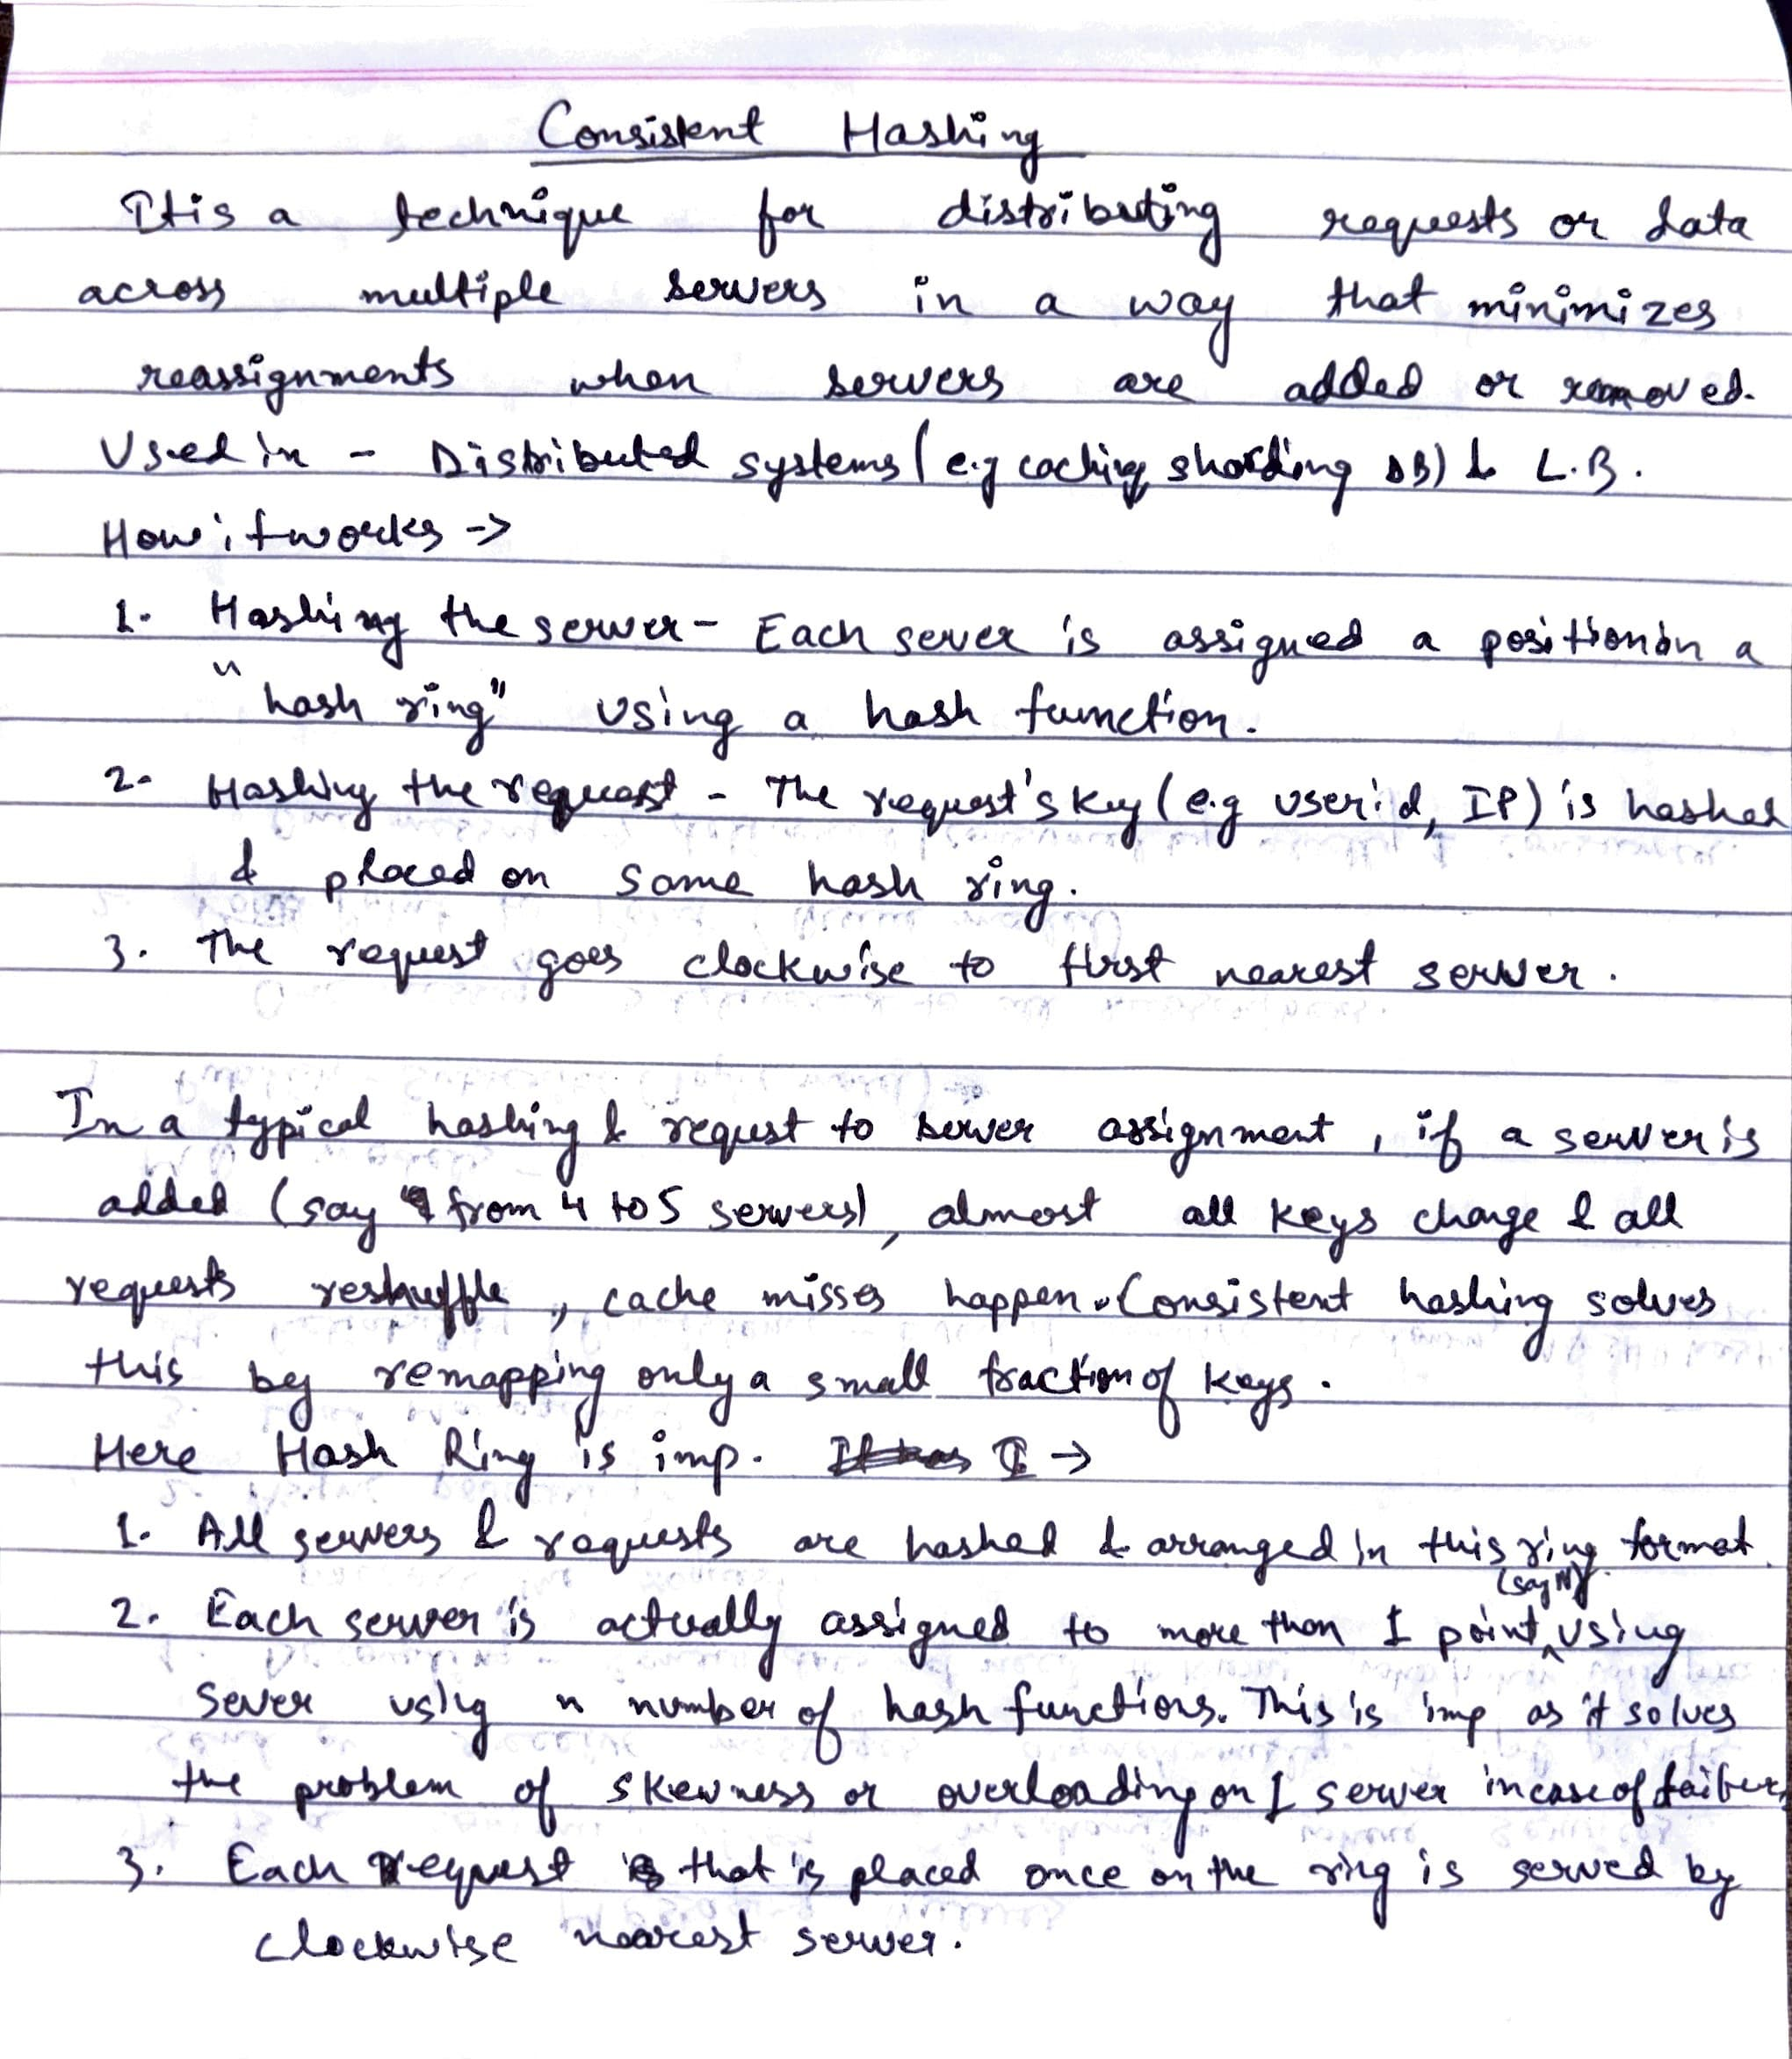 Consistent Hashing
It is a technique for distributing requests or data
across multiple servers in a way that minimizes
reassignments when servers are added or removed.
Used in - Distributed systems (e.g caching, sharding DB) & L.B.
How it works ->
1. Hashing the server - Each sever is assigned a position in a
"hash ring" using a hash function.
2. Hashing the request - The request's key (e.g user id, IP) is hashed
& placed on same hash ring.
3. The request goes clockwise to first nearest server.
In a typical hashing & request to server assignment, if a server is
added (say from 4 to 5 servers), almost all keys change & all
requests reshuffle, cache misses happen. Consistent hashing solves
this by remapping only a small fraction of keys.
Here Hash Ring is imp. →
1. All servers & requests are hashed & arranged in this ring format.
(say N)
2. Each server is actually assigned to more than 1 point, using
sever using n number of hash functions. This is imp as it solves
the problem of skewness or overloading on 1 server in case of
3. Each request that is placed once on the ring is served by
clockwise nearest server.